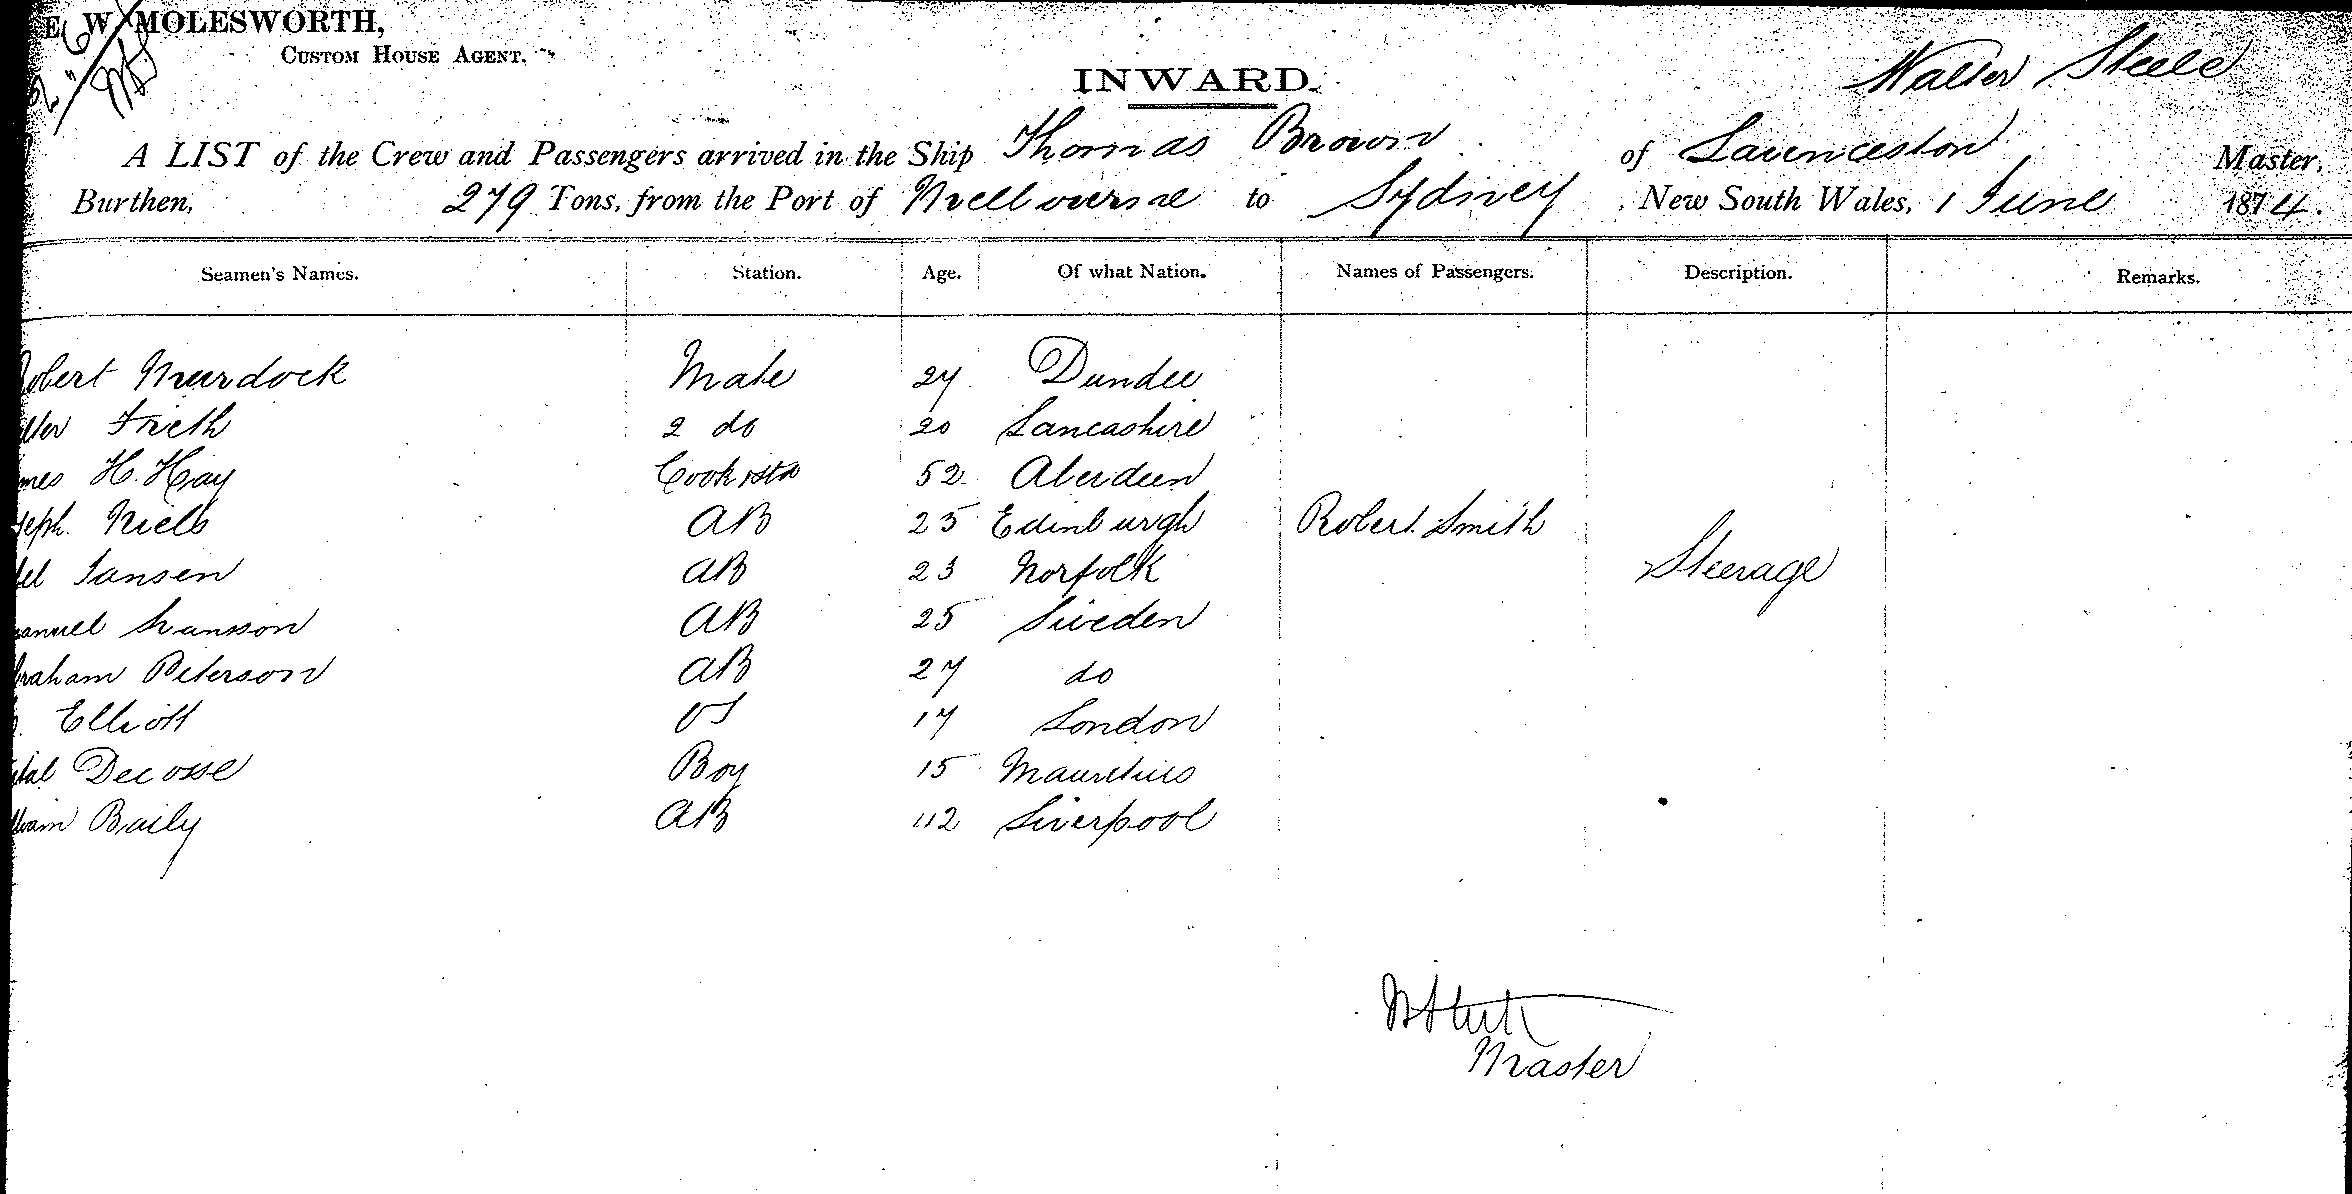 E. W. MOLESWORTH,
CUSTOM HOUSE AGENT.
INWARD.
Walter Steele
A LIST of the Crew and Passengers arrived in the Ship Thomas Brown of Launceston Master,
Burthen, 279 Tons, from the Port of Melbourne to Sydney, New South Wales, 1 June 1874.
Seamen's Names. Station. Age. Of what Nation. Names of Passengers. Description. Remarks.
Robert Murdock Mate 27 Dundee
lter Frith 2 do 20 Lancashire
mes H. Hay Cook 52 Aberdeen
seph Niels AB 25 Edinburgh Robert Smith
el Jansen AB 23 Norfolk Steerage
anuel AB 25 Sweden
braham Peterson AB 27 do
Elliott OS 17 London
Decosse Boy 15 Mauritius
lliam Baily AB 42 Liverpool
Master